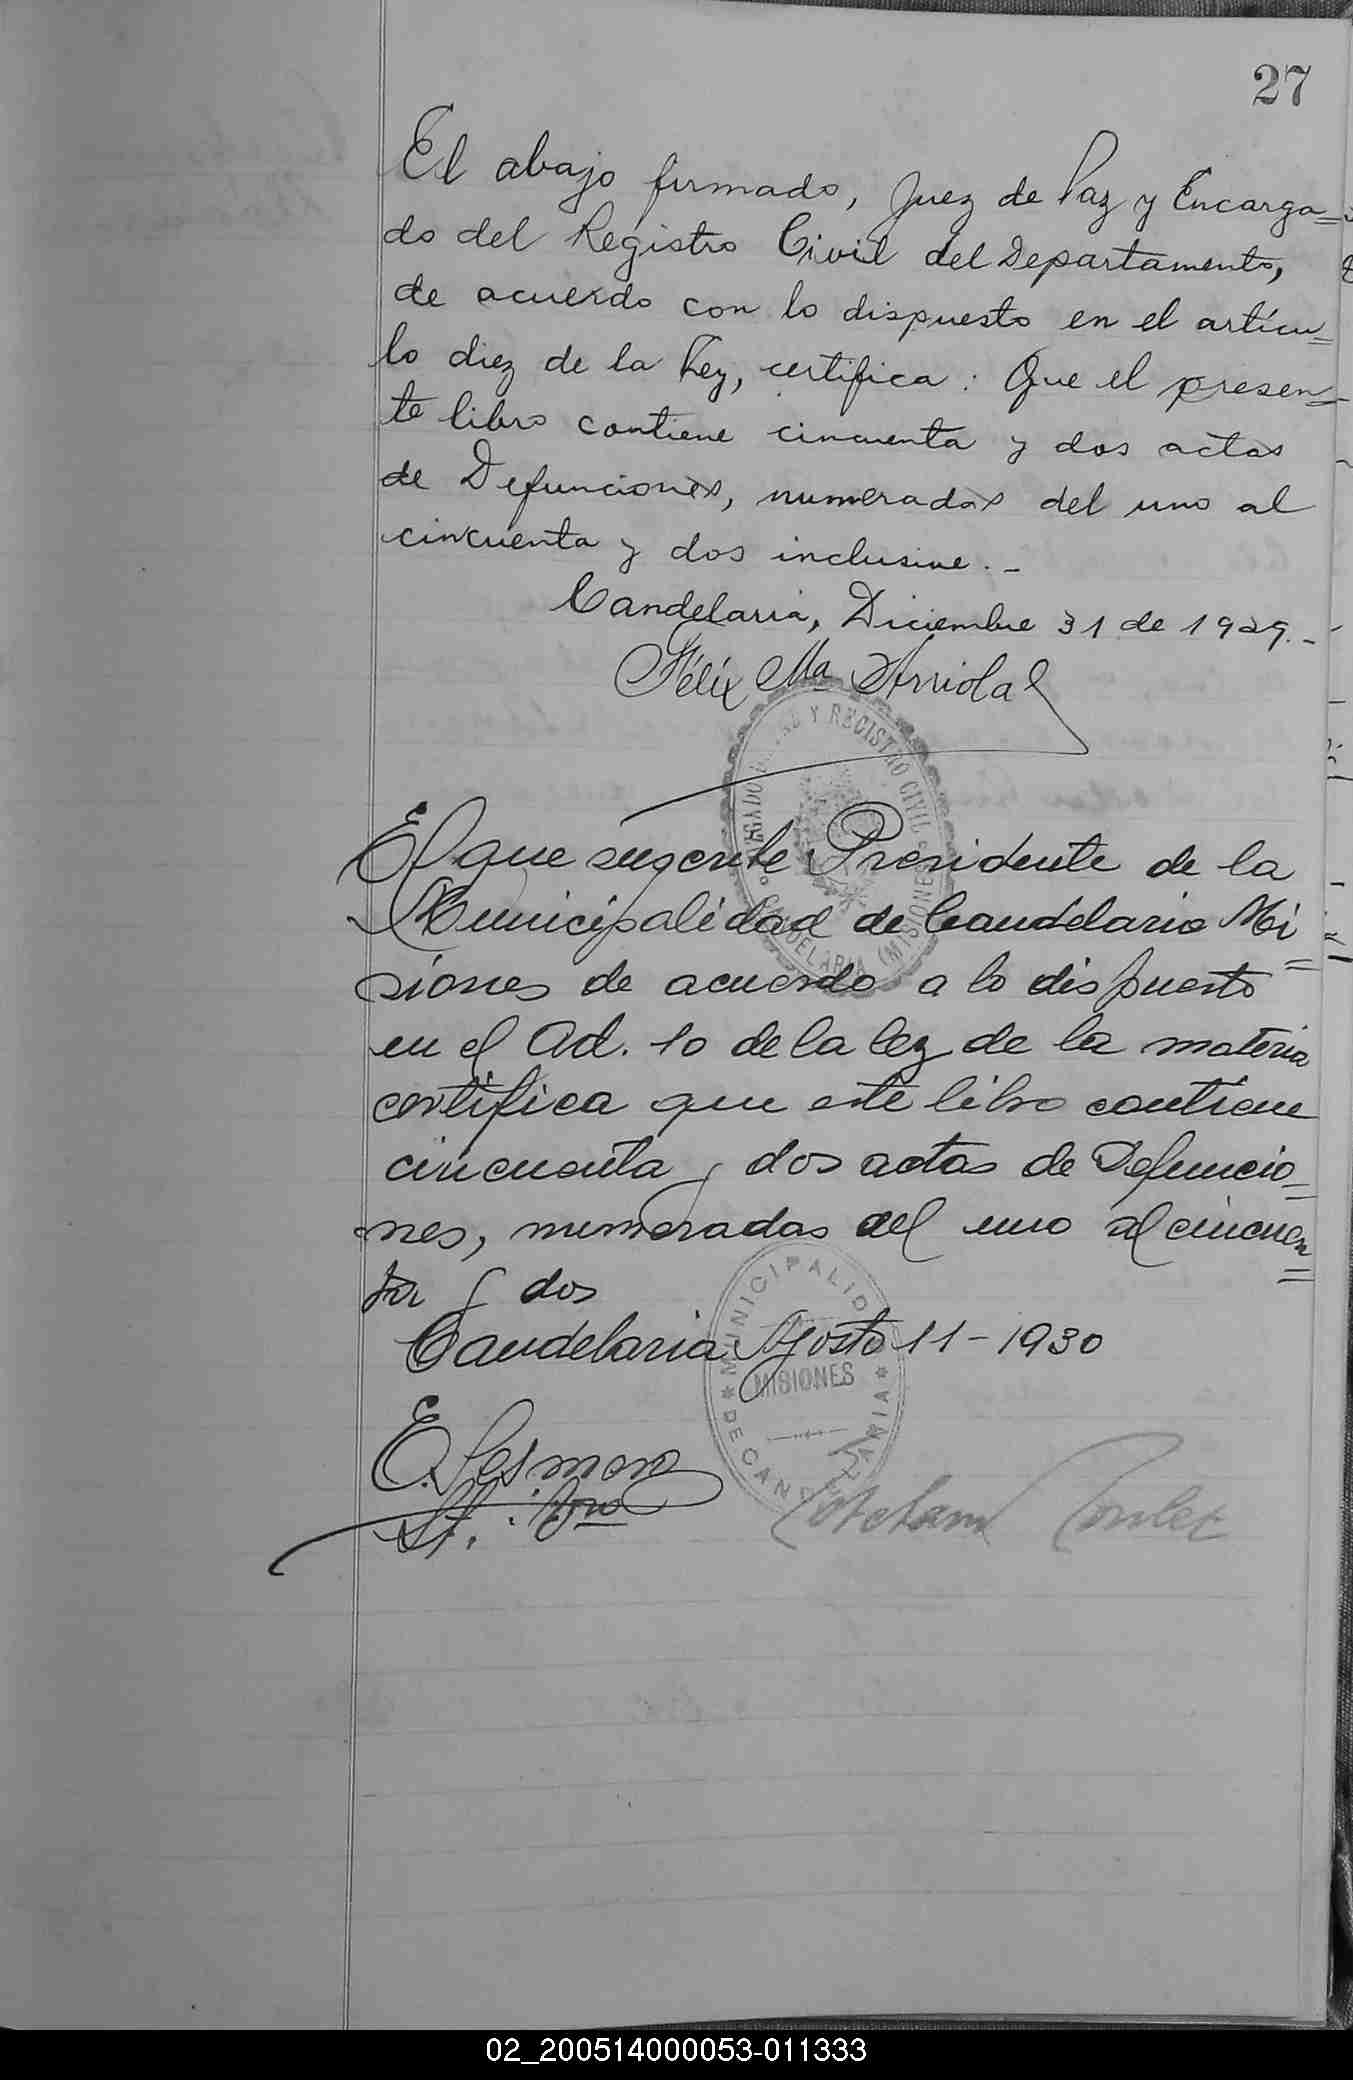 27
El abajo firmado, Juez de Paz y Encarga=
do del Registro Civil del Departamento,
de acuerdo con lo dispuesto en el artícu=
lo diez de la Ley, certifica: Que el presen=
te libro contiene cincuenta y dos actas
de Defunciones, numeradas del uno al
cincuenta y dos inclusive.-
Candelaria, Diciembre 31 de 1929.-
Félix Ma Arriola
Y REGISTRO CIVIL
CANDELARIA (MISIONES)
El que suscribe Presidente de la
Municipalidad de Candelaria Mi=
siones de acuerdo a lo dispuesto
en el Ad. 10 de la ley de la materia
certifica que este libro contiene
cincuenta y dos actas de Defuncio=
nes, numeradas del uno al cincuen=
ta y dos
Candelaria Agosto 11-1930
MUNICIPALID
MISIONES
DE CANDELARIA
E.
02_200514000053-011333